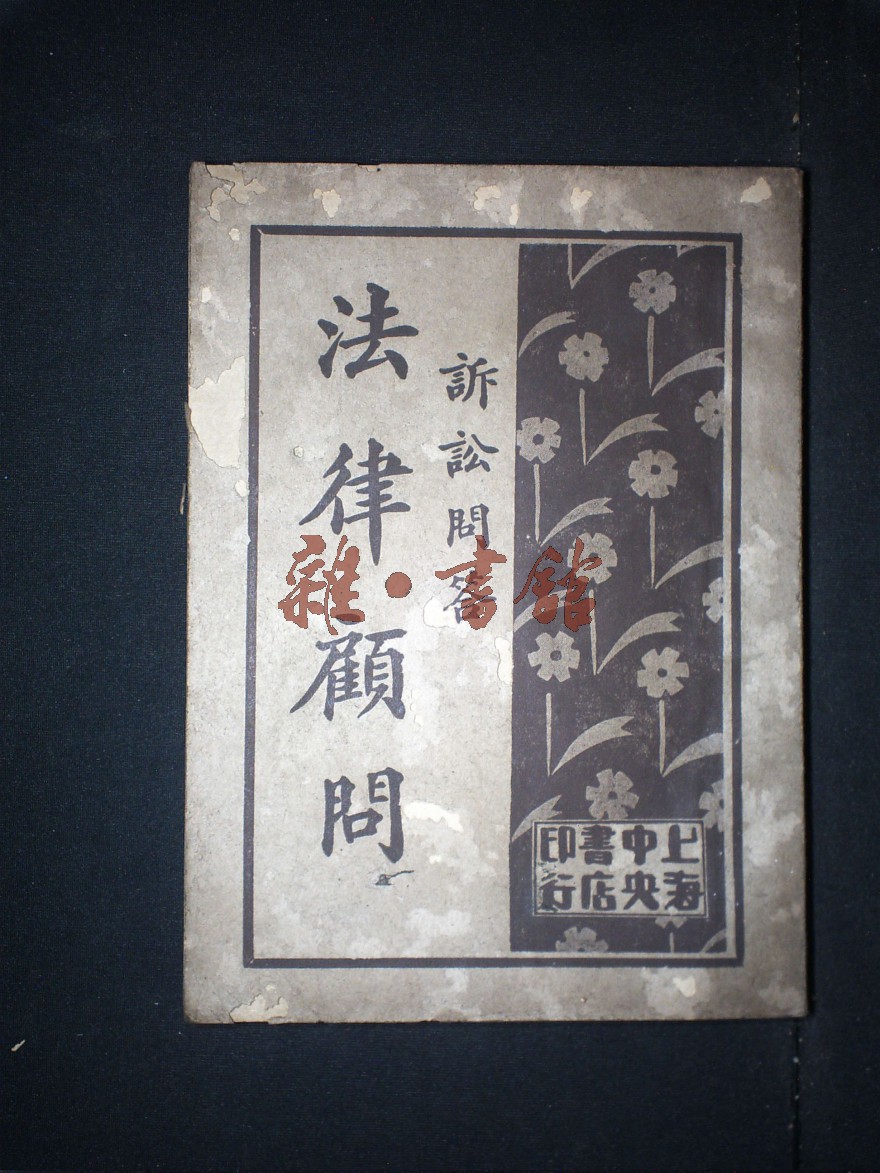 訴訟問答
法律顧問
上海
中央
書店
印行
雜·書舘